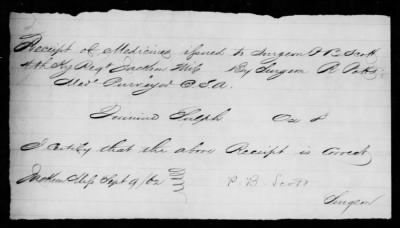 Receipt of Medicines issued to Surgeon P B Scott
4th Ky Regt Jackson Miss By Surgeon R Potts
Med. Purveyor C.S.A.
Sulph Oz
I certify that the above Receipt is correct
Jackson Miss Sept 9/62 P. B. Scott
Surgeon